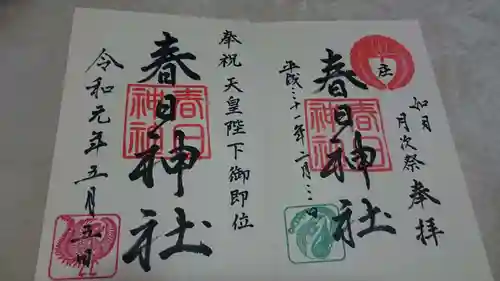 如月
月次祭
奉拝
庄
春日神社
春日神社
平成三十一年二月三日
奉祝 天皇陛下御即位
春日神社
春日神社
令和元年五月五日